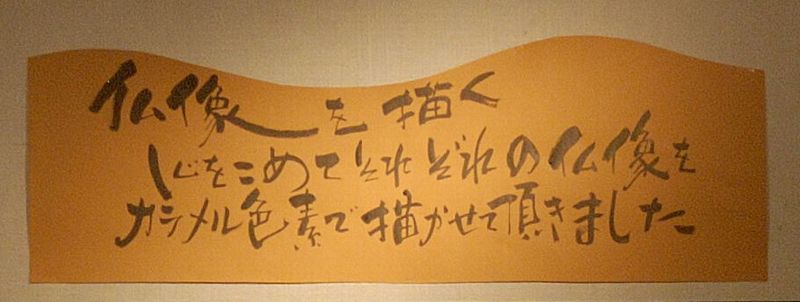 仏像を描く
心をこめてそれぞれの仏像を
カラメル色素で描かせて頂きました